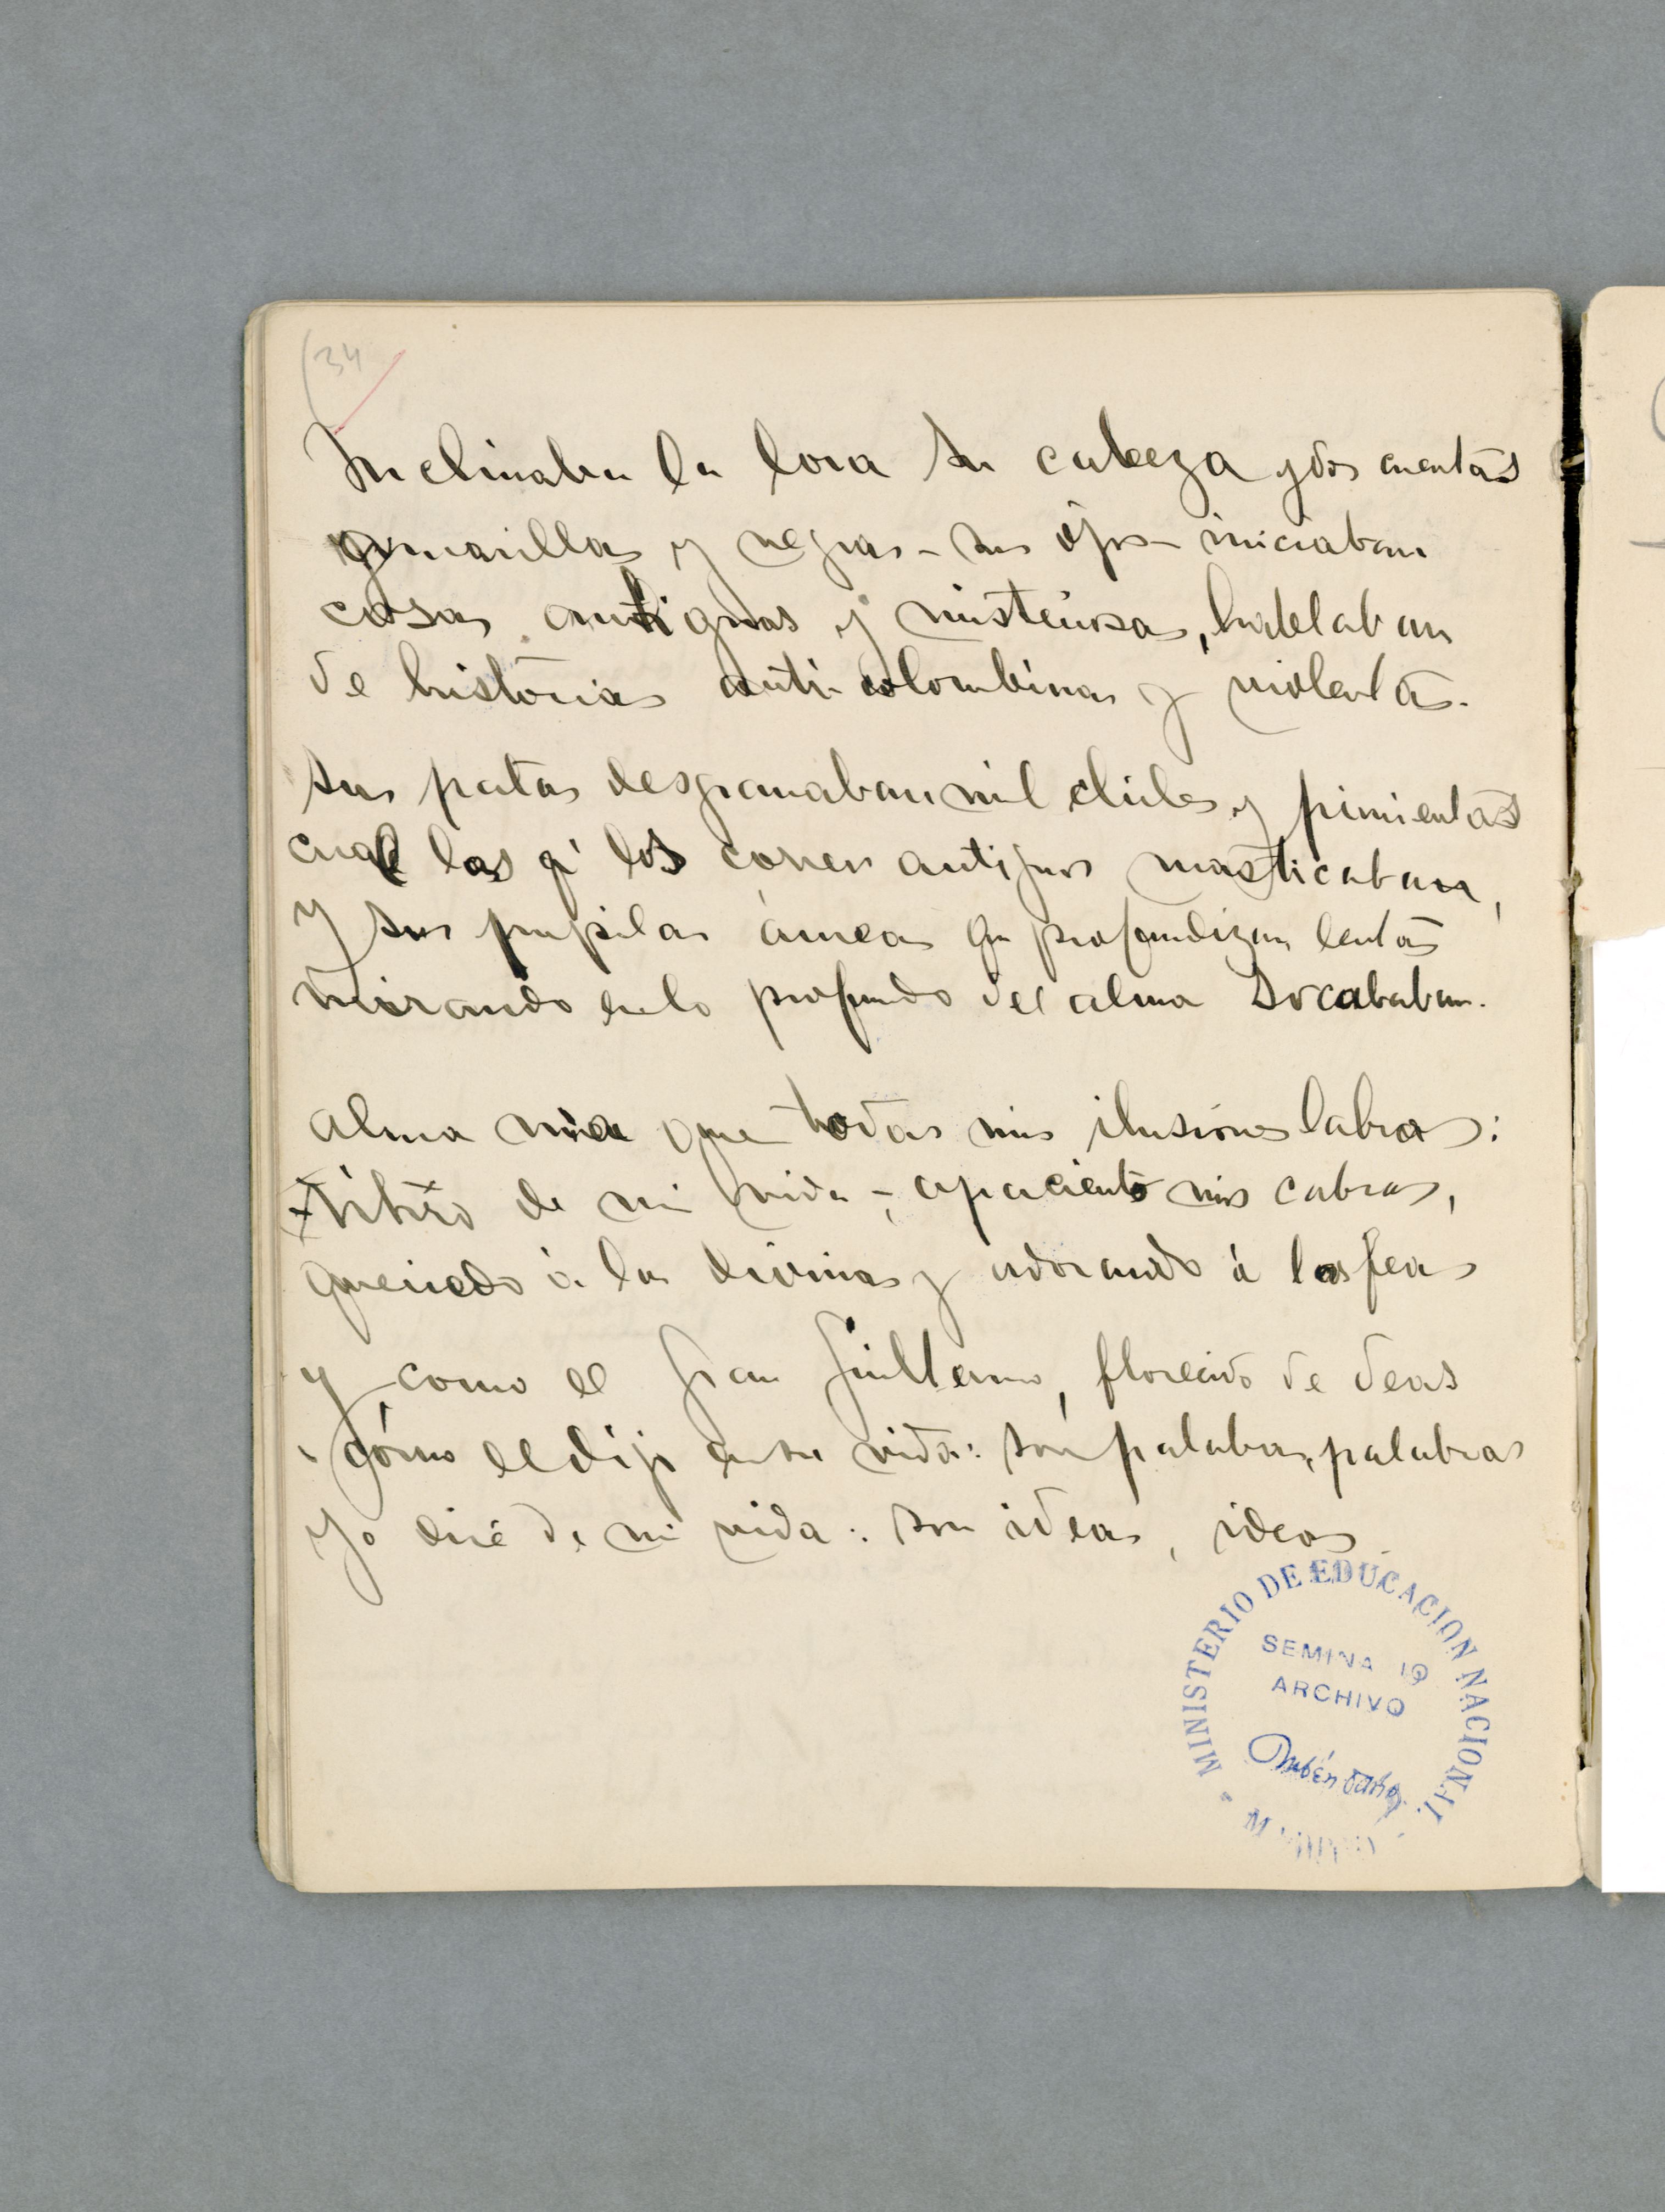 (34
Inclinaba la lora su cabeza y dos cuentas
amarillas y negras - sus ojos - iniciaban
cosas antiguas y misteriosas, hablaban
de historias anti-colombinas y violentas.
Sus patas desgranaban mil chiles y pimientas
cual las q' los antiguos masticaban,
y sus pupilas áureas qe profundizan lentas
mirando en lo profundo del alma socababan.
Alma mia que todas mis ilusiones labras:
Títiro de mi vida -, apaciento mis cabras,
queriedo á las divinas y adorando á las feas
y como el gran Guillermo, florecido de deas
cómo el dijo en su vida: son palabras, palabras
yo diré de mi vida: son ideas, ideas.
MINISTERIO DE EDUCACION NACIONAL
SEMINA IO
ARCHIVO
Rubén Darío